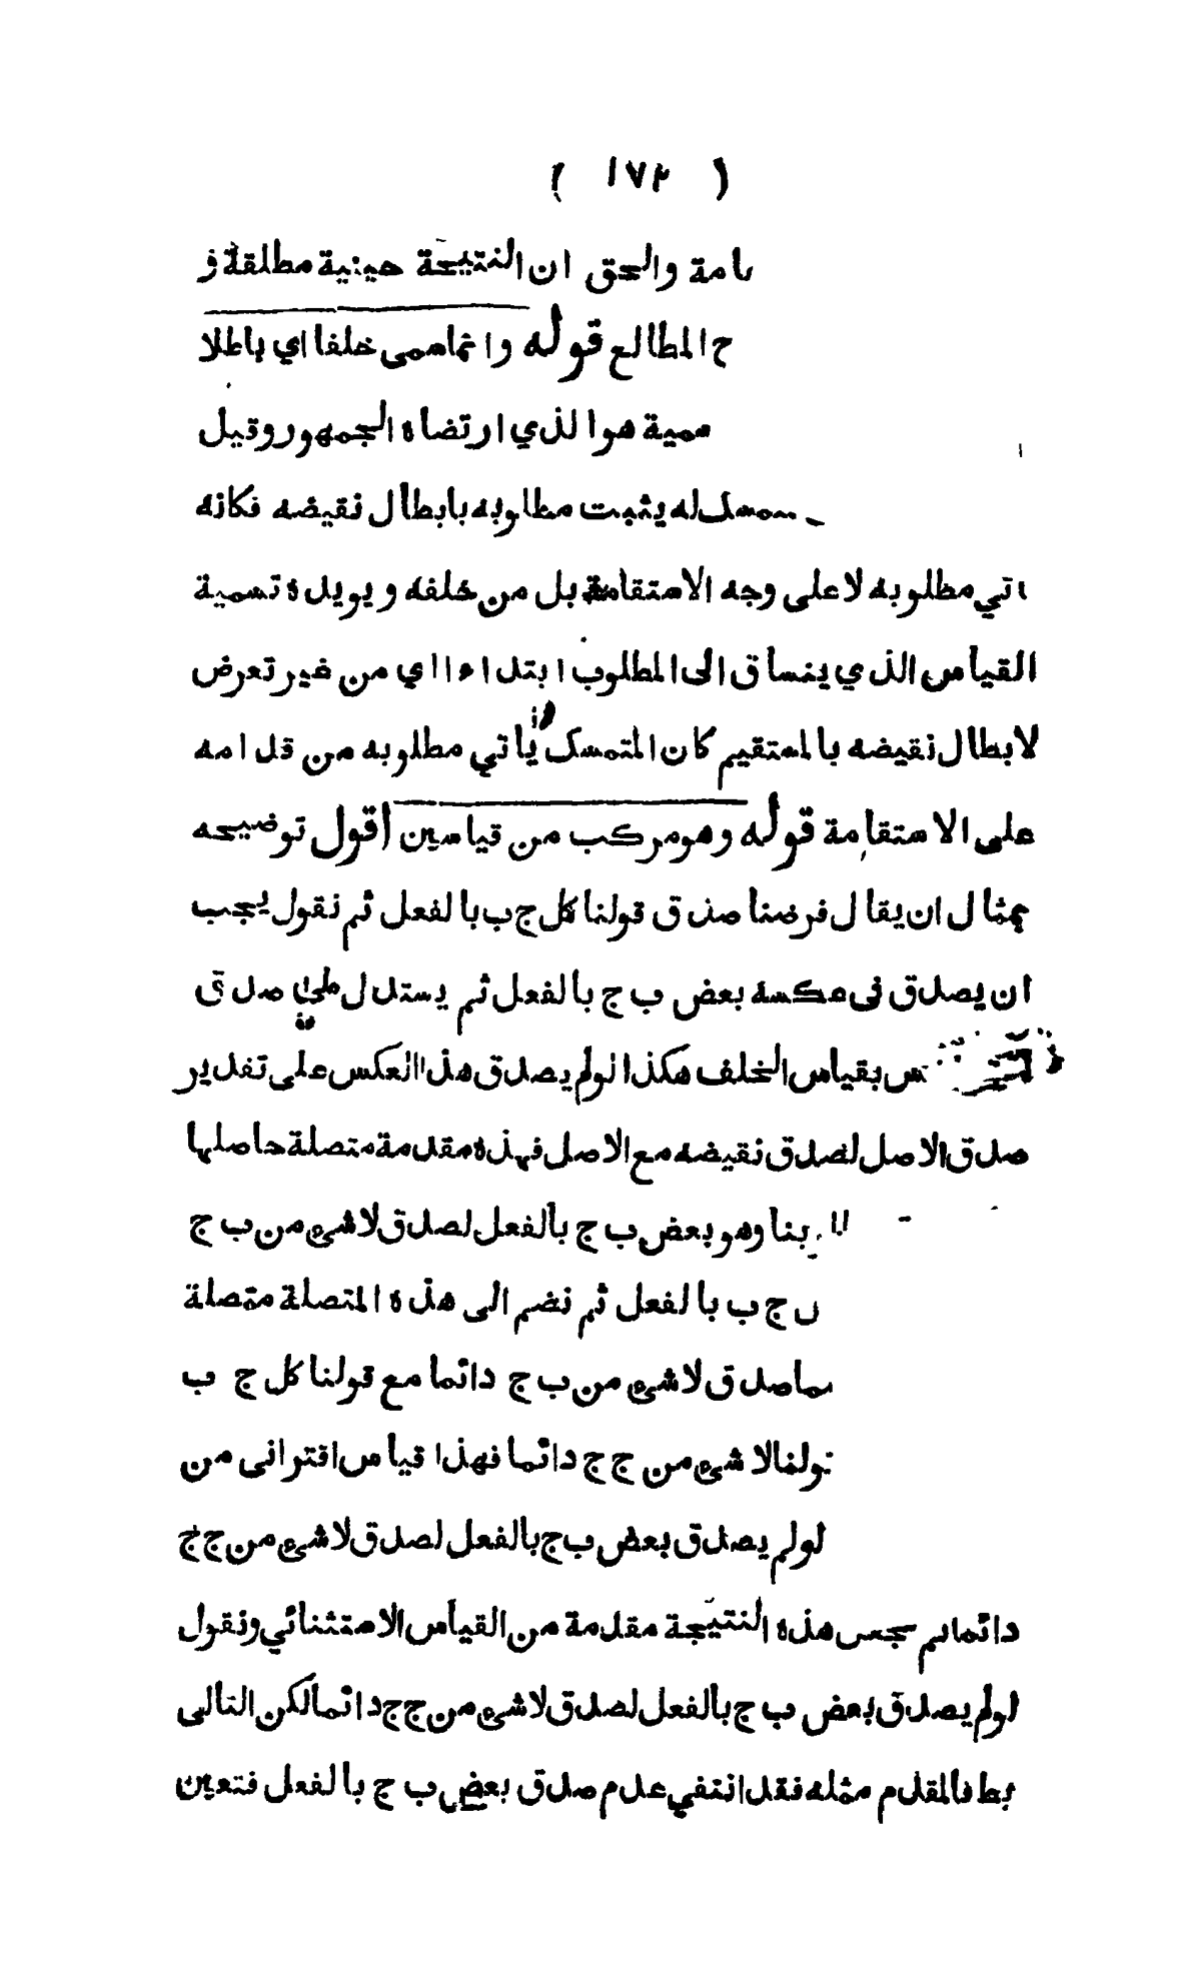 ( ١٧٢ )
امة والحق ان النتيجة حينية مطلقة و
ح المطالع قوله وانما سمى خلفا اي باطلا
سمية هو الذي ارتضاه الجمهور وقيل
له يثبت مطلوبه بابطال نقيضه فكانه
اتي مطلوبه لا على وجه الاستقامة بل من خلفه ويويده تسمية
القياس الذي ينساق الى المطلوب ابتداءا اي من غير تعرض
لابطال نقيضه بالمستقيم كان المتمسك يأتي مطلوبه من قدامه
على الاستقامة قوله وهو مركب من قياسين اقول توضيحه
بمثال ان يقال فرضنا صدق قولنا كل ج ب بالفعل ثم نقول يجب
ان يصدق في عكسه بعض ب ج بالفعل ثم يستدل على صدق
س بقياس الخلف هكذا لو لم يصدق هذا العكس على تقدير
صدق الاصل لصدق نقيضه مع الاصل فهذه مقدمة متصلة حاصلها
بنا وهو بعض ب ج بالفعل لصدق لا شئ من ب ج
ج ب بالفعل ثم نضم الى هذه المتصلة متصلة
ما صدق لا شئ من ب ج دائما مع قولنا كل ج ب
قولنا لا شئ من ج ج دائما فهذا قياس اقتراني من
لو لم يصدق بعض ب ج بالفعل لصدق لا شئ من ج ج
دائما ثم نجعل هذه النتيجة مقدمة من القياس الاستثنائي ونقول
لو لم يصدق بعض ب ج بالفعل لصدق لا شئ من ج ج دائما لكن التالى
بط فالمقدم مثله فقد انتفي عدم صدق بعض ب ج بالفعل فتعين